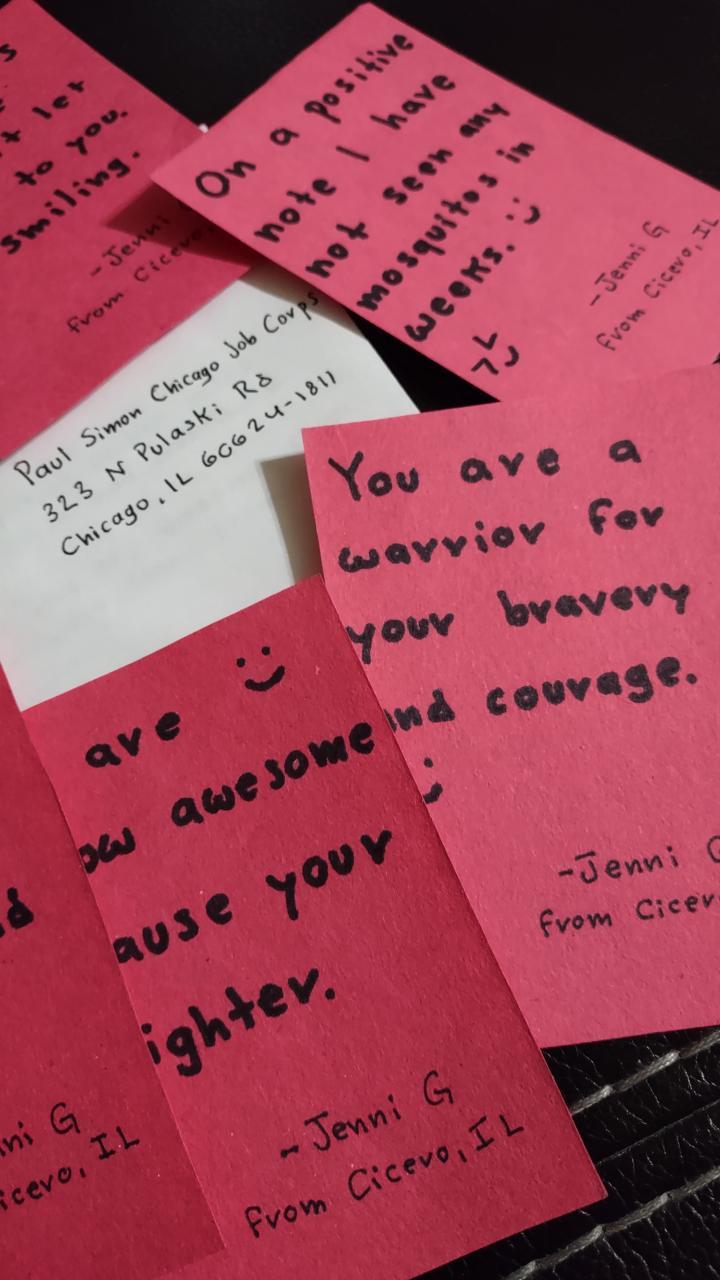 let
to you.
smiling.
-Jenni
from Cicero,
On a positive
note I have
not seen any
mosquitos in
weeks. :)
-Jenni G
from Cicero, IL
Paul Simon Chicago Job Corps
323 N Pulaski Rd
Chicago, IL 60624-1811
You are a
warrior for
your bravery
and courage.
-Jenni G
from Cicero
:)
are
awesome
your
-Jenni G
from Cicero, IL
G
IL